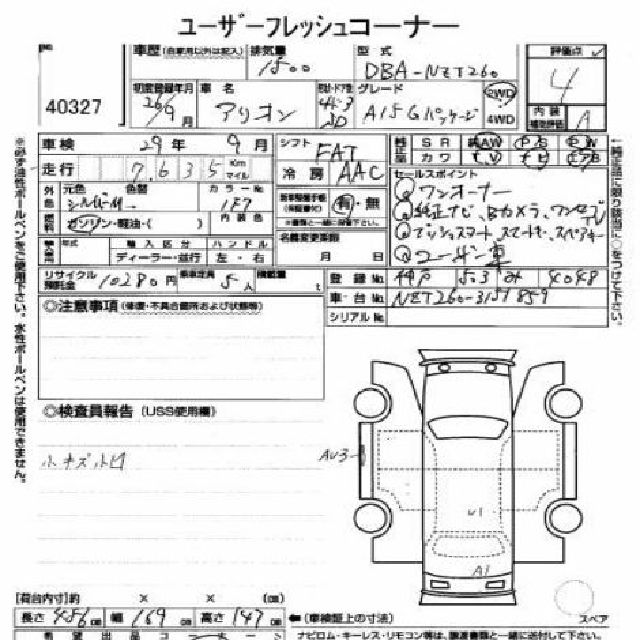 ユーザーフレッシュコーナー
40327
車歴 (自家用以外は記入) 排気量 1500
型式 DBA-NZT260
評価点 4
初度登録年月 26/9月 車名 アリオン
グレード A15Gパッケージ 2WD 4WD
内装 補助評価 A
車検 29年 9月 シフト FAT
走行 7,635 Km マイル 冷房 AAC
純正 SR AW PS PW
カワ TV ナビ エアB
外色 元色 シルバーM 色替 カラーNo. 1F7
燃料 ガソリン・軽油・( ) 内装色
有・無
輸入車 年式 輸入区分 ハンドル
ディーラー・並行 左・右
名義変更期限 月 日
セールスポイント
①ワンオーナー
②純正ナビ、Bカメラ、ワンセグTV
③プッシュスタート スマートキー、スペアキー
④ユーザー車
リサイクル預託金 10280円 乗車定員 5人 積載量 t
登録No. 神戸 503 4048
車台No. NZT260-3151859
シリアルNo.
◎注意事項 (修復・不具合箇所および状態等)
◎検査員報告 (USS使用欄)
小キズ小凹
AU3
U1
A1
スペア
[荷台内寸] × × (cm)
長さ 456 幅 169 高さ 147 ←(車検証上の寸法)
希望出品コーナー
ナビロム・キーレス・リモコン等は、譲渡書類と一緒に送付して下さい。
※必ず油性ボールペンをご使用下さい。水性ボールペンは使用できません。
↑純正品に限り該当に○をつけて下さい